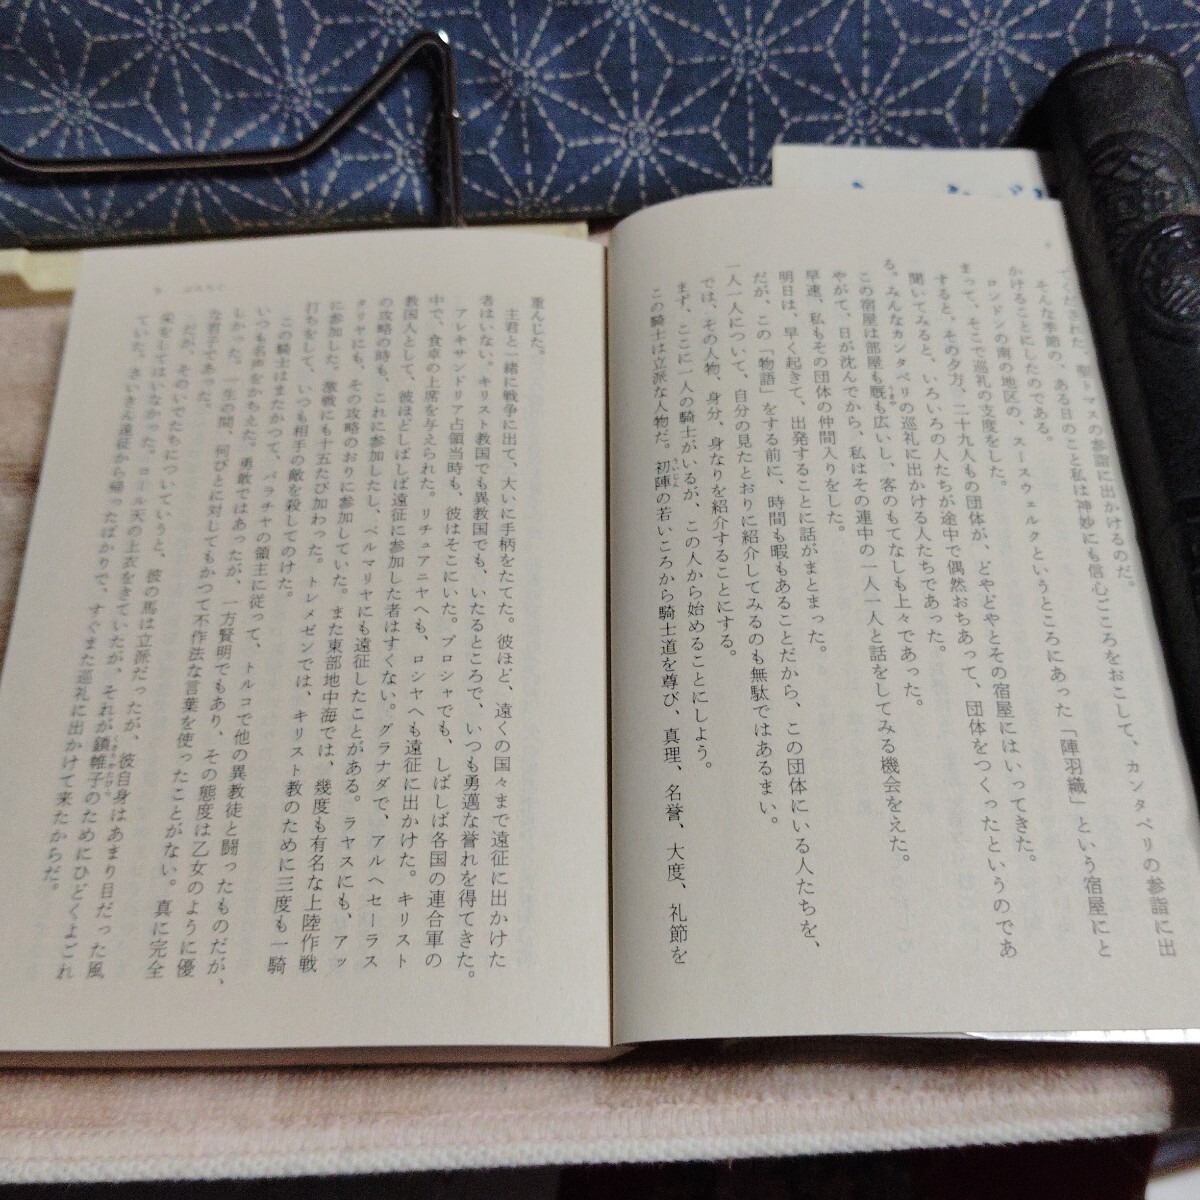 てくだされた、聖トマスの参詣に出かけるのだ。
そんな季節の、ある日のこと私は神妙にも信心ごころをおこして、カンタベリの参詣に出
かけることにしたのである。
ロンドンの南の地区の、スースウェルクというところにあった「陣羽織」という宿屋にと
まって、そこで巡礼の支度をした。
すると、その夕方、二十九人もの団体が、どやどやとその宿屋にはいってきた。
聞いてみると、いろいろの人たちが途中で偶然おちあって、団体をつくったというのであ
る。みんなカンタベリの巡礼に出かける人たちであった。
この宿屋は部屋も厩も広いし、客のもてなしも上々であった。
うまや
やがて、日が沈んでから、私はその連中の一人一人と話をしてみる機会をえた。
早速、私もその団体の仲間入りをした。
明日は、早く起きて、出発することに話がまとまった。
だが、この「物語」をする前に、時間も暇もあることだから、この団体にいる人たちを、
一人一人について、自分の見たとおりに紹介してみるのも無駄ではあるまい。
では、その人物、身分、身なりを紹介することにする。
まず、ここに一人の騎士がいるが、この人から始めることにしよう。
この騎士は立派な人物だ。初陣の若いころから騎士道を尊び、真理、名誉、大度、礼節を
ういじん
重んじた。
主君と一緒に戦争に出て、大いに手柄をたてた。彼ほど、遠くの国々まで遠征に出かけた
者はいない。キリスト教国でも異教国でも、いたるところで、いつも勇邁な誉れを得てきた。
アレキサンドリア占領当時も、彼はそこにいた。プロシャでも、しばしば各国の連合軍の
中で、食卓の上席を与えられた。リチュアニヤへも、ロシヤへも遠征に出かけた。キリスト
教国人として、彼ほどしばしば遠征に参加した者はすくない。グラナダで、アルヘセーラス
の攻略の時も、これに参加したし、ベルマリヤにも遠征したことがある。ラヤスにも、アッ
タリヤにも、その攻略のおりに参加していた。また東部地中海では、幾度も有名な上陸作戦
に参加した。激戦にも十五たび加わった。トレメゼンでは、キリスト教のために三度も一騎
打ちをして、いつも相手の敵を殺してのけた。
この騎士はまたかつて、パラチヤの領主に従って、トルコで他の異教徒と闘ったものだが、
いつも名声をかちえた。勇敢ではあったが、一方賢明でもあり、その態度は乙女のように優
しかった。一生の間、何びとに対してもかつて不作法な言葉を使ったことがない。真に完全
な君子であった。
だが、そのいでたちについていうと、彼の馬は立派だったが、彼自身はあまり目だった風
采をしてはいなかった。ロール天の上衣をきていたが、それが鎖帷子のためにひどくよごれ
くさりかたびら
ていた。さいきん遠征から帰ったばかりで、すぐまた巡礼に出かけて来たからだ。